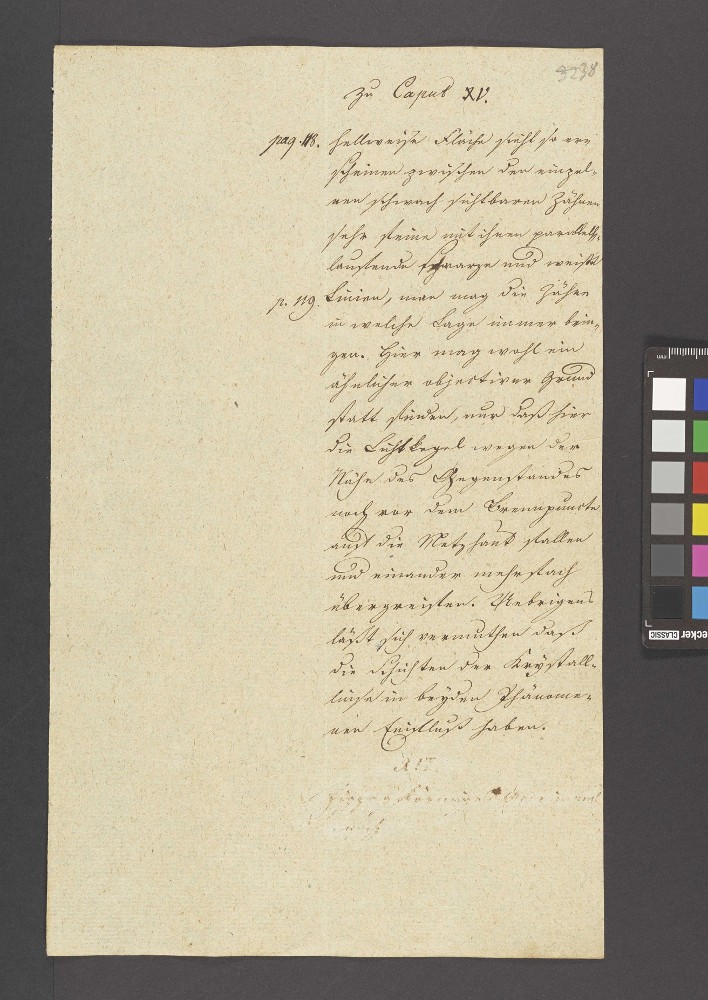 3238
Zu Caput XV.
pag. 118. hellweiße Fläche sieht so er-
scheinen zwischen den einzel-
nen schwach sichtbaren Zähnen
sehr feine mit ihnen parallell-
laufende schwarze und weiße
p. 119. Linien, man mag die Zähne
in welche Lage immer brin-
gen. Hier mag wohl ein
ähnlicher objectiver Grund
statt finden, nur daß hier
die Lichtkegel wegen der
Nähe des Gegenstandes
noch vor dem Brennpuncte
auf die Netzhaut fallen
und einander mehrfach
übergreifen. Uebrigens
läßt sich vermuthen daß
die Schichten der Krystall-
linse in beyden Phänome-
nen Einfluß haben.